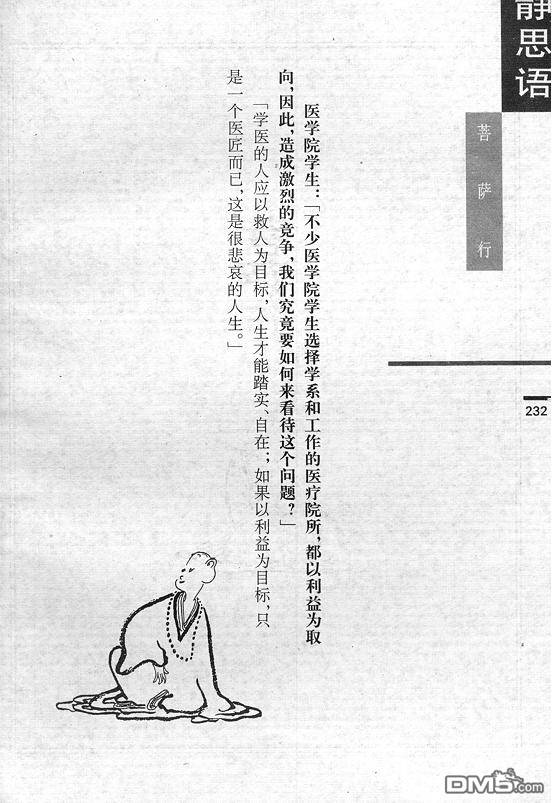 静思语
菩萨行
232
医学院学生：「不少医学院学生选择学系和工作的医疗院所，都以利益为取
向，因此，造成激烈的竞争，我们究竟要如何来看待这个问题？」
「学医的人应以救人为目标，人生才能踏实、自在；如果以利益为目标，只
是一个医匠而已，这是很悲哀的人生。」
DM5.com